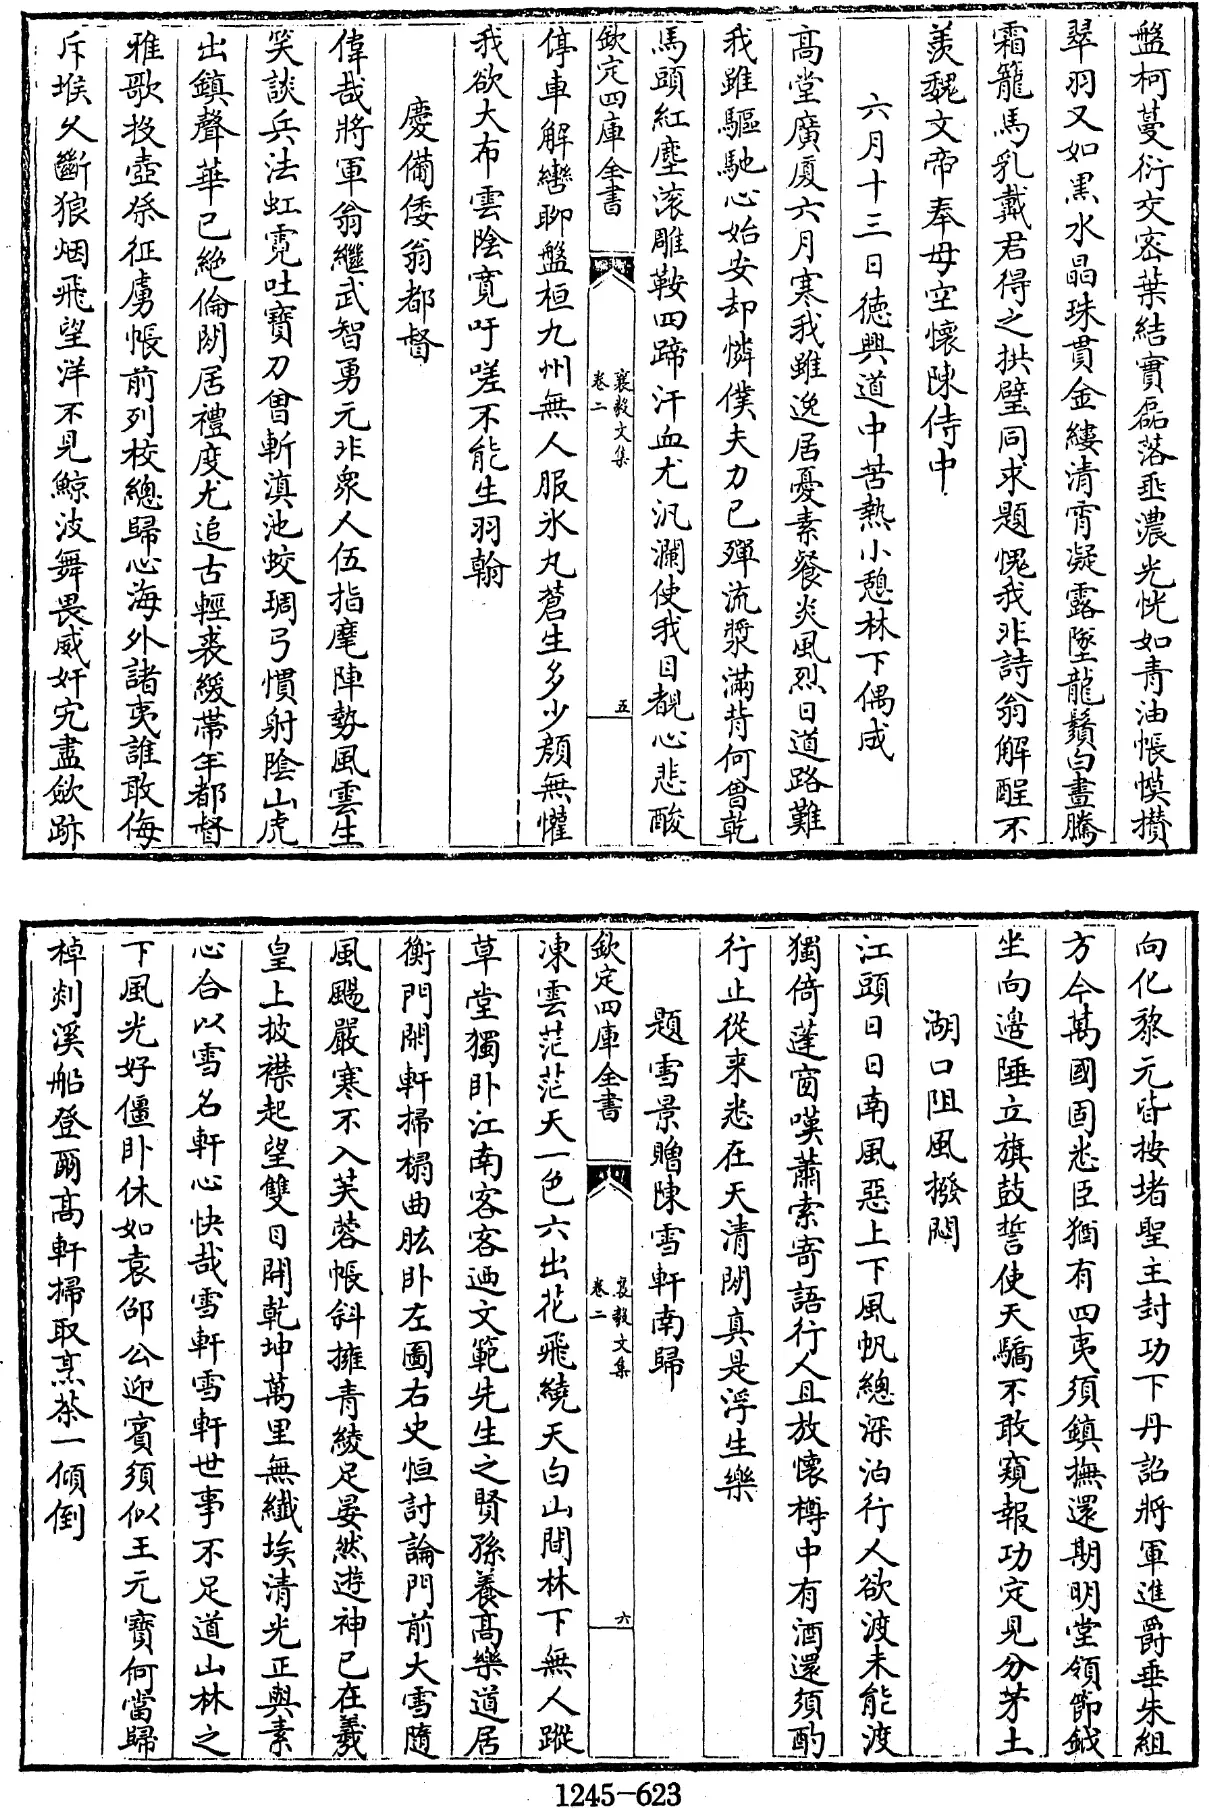 盤柯蔓衍交密葉結實磊落垂濃光恍如青油帳幙攢
翠羽又如黒水晶珠貫金縷清宵凝露墜龍鬚白晝騰
霜籠馬乳戴君得之拱璧同求題愧我非詩翁解酲不
羨魏文帝奉母空懷陳侍中
六月十三日徳興道中苦熱小憩林下偶成
高堂廣厦六月寒我雖逸居憂素餐炎風烈日道路難
我雖驅馳心始安却憐僕夫力已殫流漿滿背何曾乾
馬頭紅塵滚雕鞍四蹄汗血尤汎瀾使我目覩心悲酸
欽定四庫全書
襄毅文集
卷二
五
停車解轡聊盤桓九州無人服氷丸蒼生多少顔無懽
我欲大布雲陰寛吁嗟不能生羽翰
慶備倭翁都督
偉哉將軍翁繼武智勇元非衆人伍指麾陣勢風雲生
笑談兵法虹霓吐寶刀曽斬滇池蛟琱弓慣射陰山虎
出鎮聲華已絶倫閑居禮度尤追古輕裘緩帶年都督
雅歌投壺祭征虜帳前列校總歸心海外諸夷誰敢侮
斥堠久斷狼烟飛望洋不見鯨波舞畏威奸宄盡歛跡
向化黎元皆按堵聖主封功下丹詔將軍進爵垂朱組
方今萬國固悉臣猶有四夷須鎮撫還期明堂領節鉞
坐向邉陲立旗鼓誓使天驕不敢窺報功定見分茅土
湖口阻風撥悶
江頭日日南風惡上下風帆總深泊行人欲渡未能渡
獨倚蓬窗嘆蕭索寄語行人且放懷樽中有酒還須酌
行止從来悉在天清閑真是浮生樂
題雪景贈陳雪軒南歸
欽定四庫全書
襄毅文集
卷二
六
凍雲茫茫天一色六出花飛繞天白山間林下無人蹤
草堂獨卧江南客客迺文範先生之賢孫養髙樂道居
衡門閑軒掃榻曲肱卧左圖右史恒討論門前大雪隨
風颺嚴寒不入芙蓉帳斜擁青綾足晏然遊神已在羲
皇上披襟起望雙目開乾坤萬里無纎埃清光正與素
心合以雪名軒心快哉雪軒雪軒世事不足道山林之
下風光好僵卧休如袁邵公迎賓須似王元寶何當歸
棹剡溪船登爾髙軒掃取烹茶一傾倒
1245-623